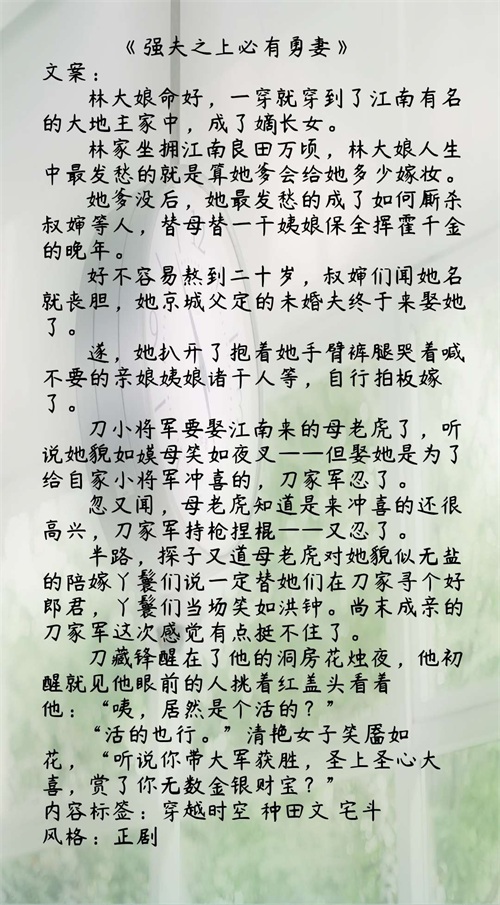 《强夫之上必有勇妻》
文案：
林大娘命好，一穿就穿到了江南有名
的大地主家中，成了嫡长女。
林家坐拥江南良田万顷，林大娘人生
中最发愁的就是算她爹会给她多少嫁妆。
她爹没后，她最发愁的成了如何厮杀
叔婶等人，替母替一干姨娘保全挥霍千金
的晚年。
好不容易熬到二十岁，叔婶们闻她名
就丧胆，她京城父定的未婚夫终于来娶她
了。
遂，她扒开了抱着她手臂裤腿哭着喊
不要的亲娘姨娘诸干人等，自行拍板嫁
了。
刀小将军要娶江南来的母老虎了，听
说她貌如嫫母笑如夜叉——但娶她是为了
给自家小将军冲喜的，刀家军忍了。
忽又闻，母老虎知道是来冲喜的还很
高兴，刀家军持枪捏棍——又忍了。
半路，探子又道母老虎对她貌似无盐
的陪嫁丫鬟们说一定替她们在刀家寻个好
郎君，丫鬟们当场笑如洪钟。尚未成亲的
刀家军这次感觉有点挺不住了。
刀藏锋醒在了他的洞房花烛夜，他初
醒就见他眼前的人挑着红盖头看着
他：“咦，居然是个活的？”
“活的也行。”清艳女子笑靥如
花，“听说你带大军获胜，圣上圣心大
喜，赏了你无数金银财宝？”
内容标签：穿越时空 种田文 宅斗
风格：正剧